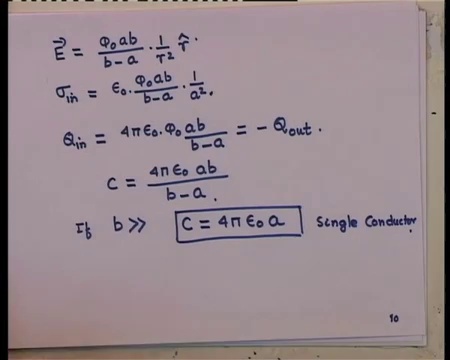 E⃗ = φ₀ab/(b−a) · 1/r² r̂.
σin = ε₀ · φ₀ab/(b−a) · 1/a².
Qin = 4πε₀·φ₀ ab/(b−a) = −Qout.
C = 4πε₀ ab/(b−a).
If b>> C = 4πε₀a Single Conductor.
10